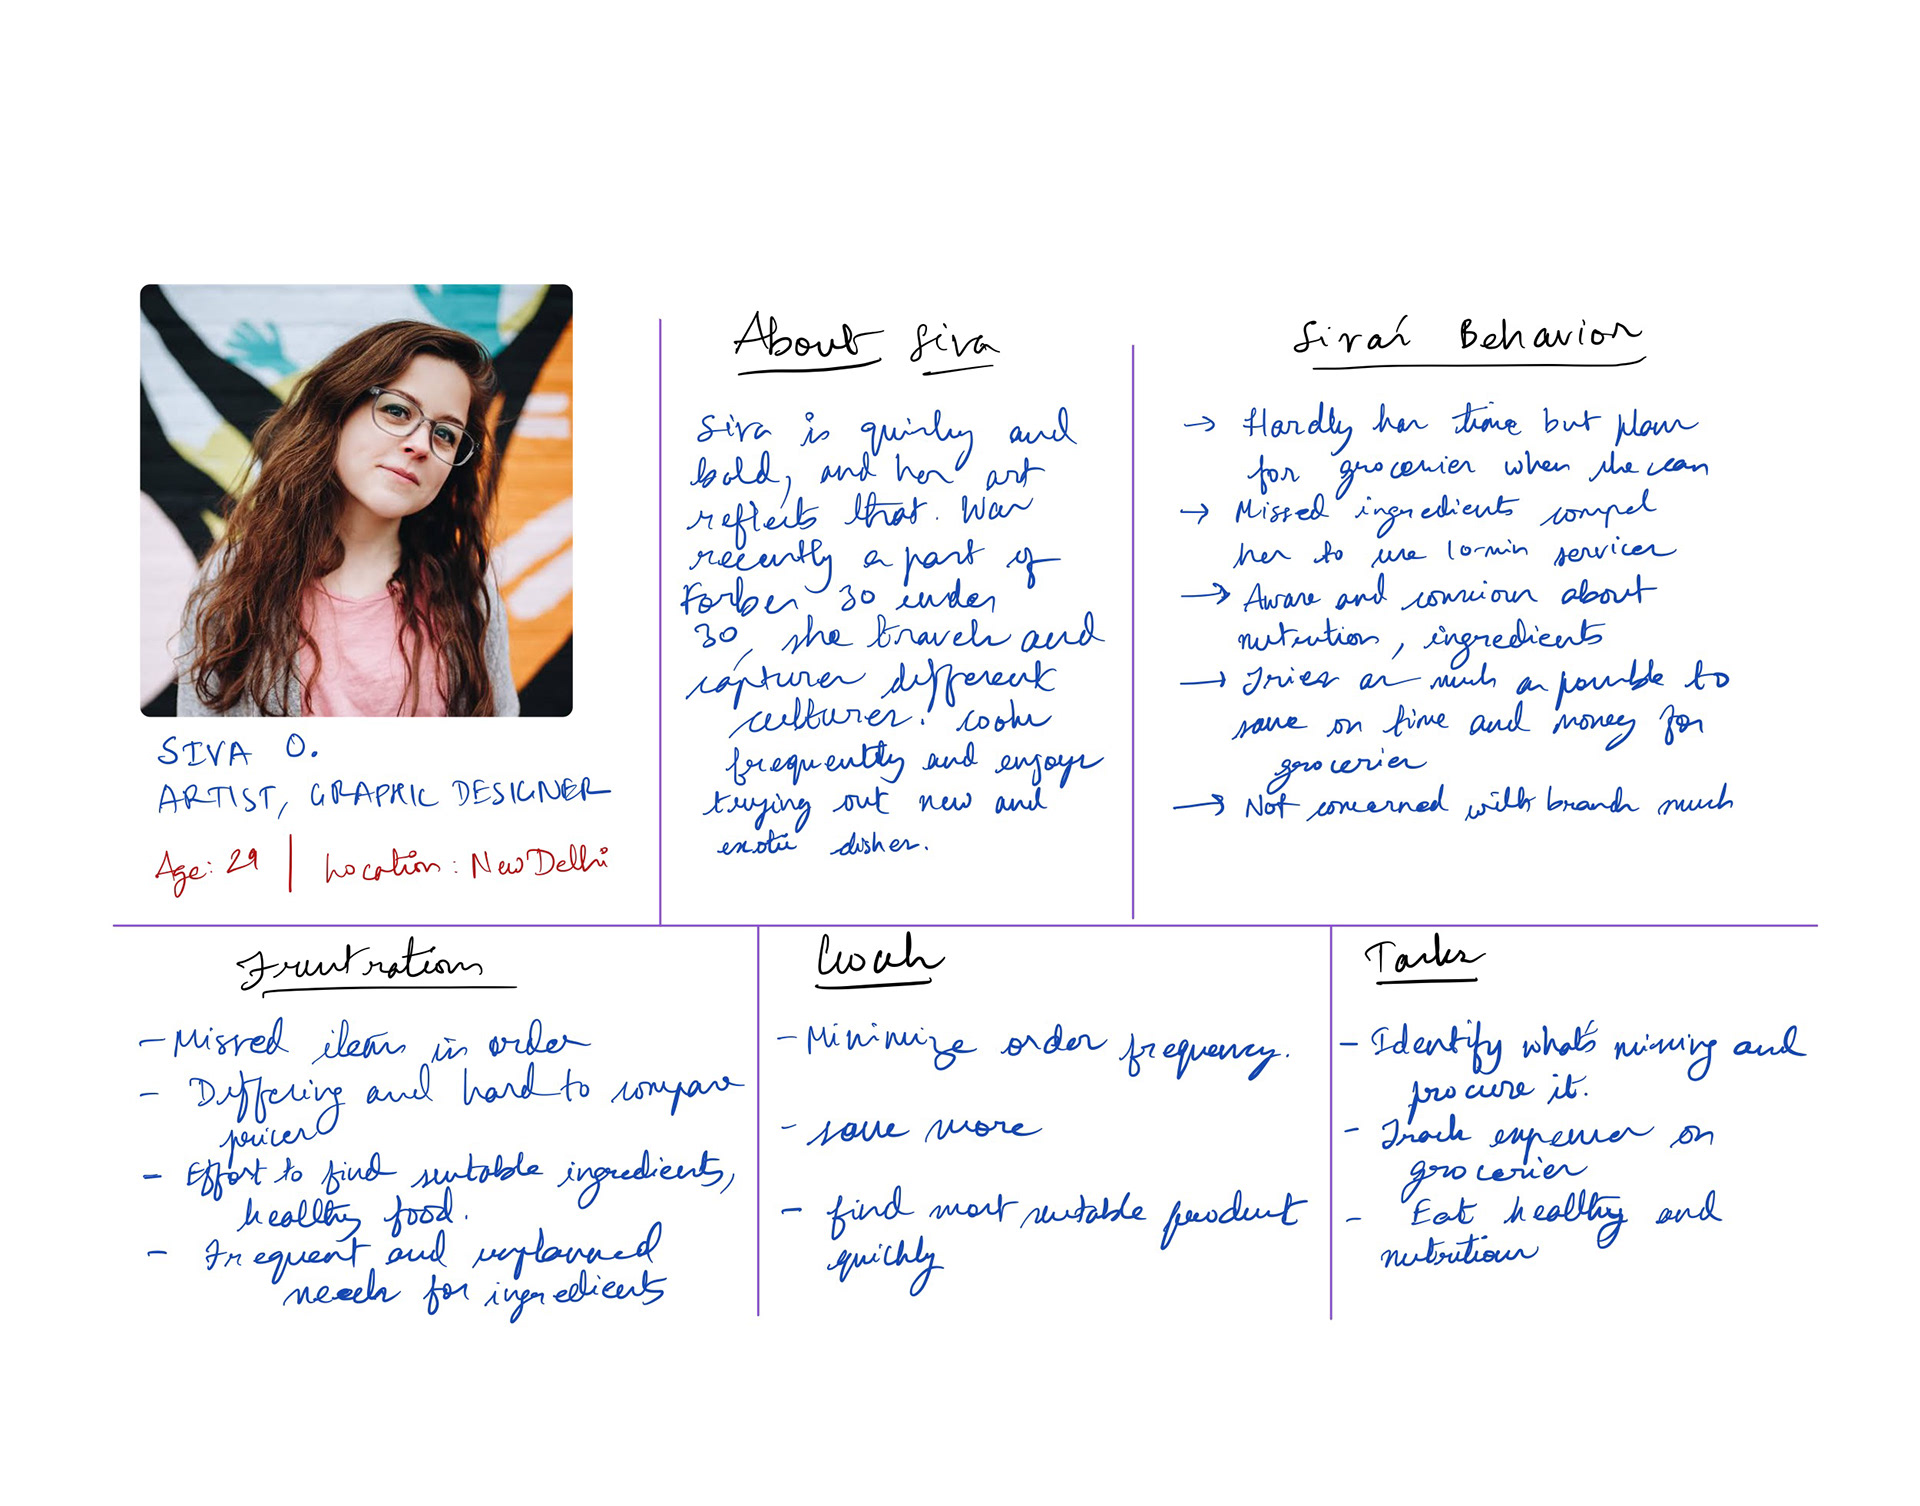 SIVA O.
ARTIST, GRAPHIC DESIGNER
Age: 29 | Location: New Delhi
About Siva
Siva is quirky and
bold, and her art
reflects that. Was
recently a part of
Forbes 30 under
30, she travels and
captures different
cultures. Cooks
frequently and enjoys
trying out new and
exotic dishes.
Siva's Behavior
→ Hardly has time but plans
for groceries when she can
→ Missed ingredients compel
her to use 10-min services
→ Aware and conscious about
nutrition, ingredients
→ Tries as much as possible to
save on time and money for
groceries
→ Not concerned with brands much
Frustrations
- Missed items in order
- Differing and hard to compare
prices
- Effort to find suitable ingredients,
healthy food.
- Frequent and unplanned
needs for ingredients
Goals
- Minimize order frequency.
- save more
- find most suitable product
quickly
Tasks
- Identify what's missing and
procure it.
- Track expenses on
groceries
- Eat healthy and
nutritious